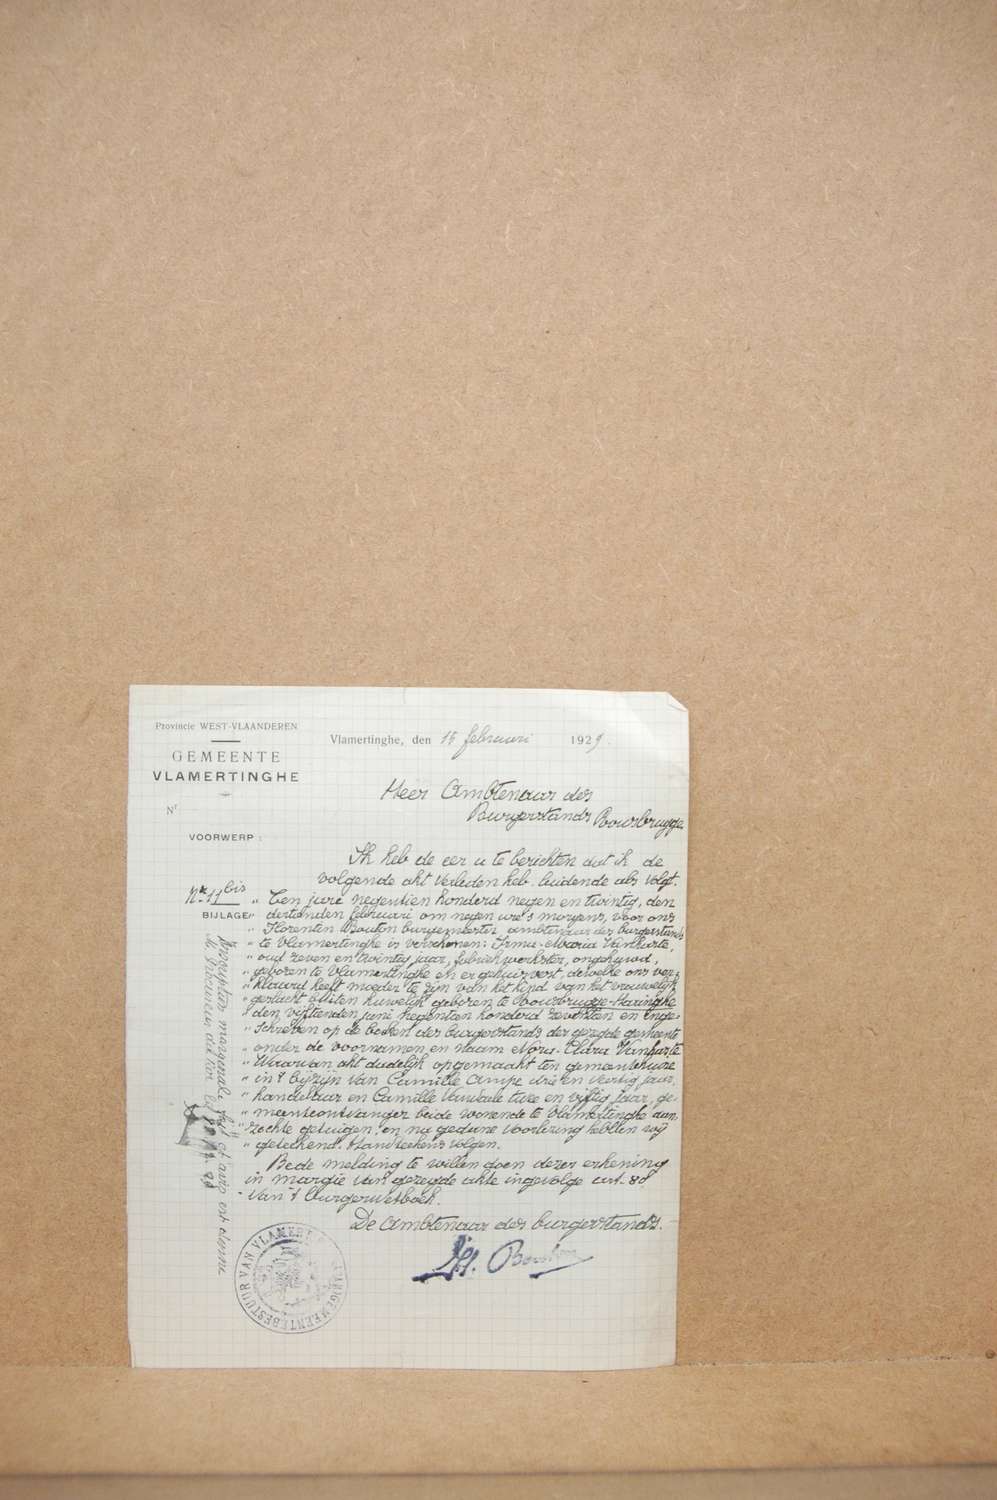 Provincie WEST-VLAANDEREN
GEMEENTE
VLAMERTINGHE
Nr
VOORWERP :
Nr. 11 bis
BIJLAGE
Vlamertinghe, den 15 februari 1929.
Heer Ambtenaar des
Burgerstands Rousbrugge
Ik heb de eer u te berichten dat ik de
volgende akt verleden heb, luidende als volgt.
" Ten jare negentien honderd negen en twintig, den
" dertienden februari om negen ure 's morgens, voor ons
" Florentin Bouton burgemeester ambtenaar des burgerstands
" te Vlamertinghe is verschenen: Irma-Maria Vanharte,
" oud zeven en twintig jaar, fabriekwerkster, ongehuwd,
" geboren te Vlamertinghe en er gehuisvest, dewelke ons ver-
" klaard heeft moeder te zijn van het kind van het vrouwelijk
" geslacht buiten huwelijk geboren te Rousbrugge-Haringhe
" den vijftienden juni negentien honderd zeventien en inge-
" schreven op de boeken des burgerstands der gezegde gemeente
" onder de voornamen en naam Nora-Clara Vanharte
" Waarvan akt dudelijk opgemaakt ten gemeentehuize
" in 't bijzijn van Camille Ampe drie en veertig jaar,
" handelaar en Camille twee en vijftig jaar, ge-
" meenteontvanger beide wonende te Vlamertinghe aan-
" zochte getuigen, en na gedane voorlezing hebben wij
" geteekend. Handteekens volgen.
Bede melding te willen doen dezer erkening
in margie van gezegde akte ingevolge art.
van 't Burgerwetboek.
De Ambtenaar des burgerstands.
Inscription marginale faite et avis est donné
Mr Procureur du Roi
GEMEENTEBESTUUR VAN VLAMER